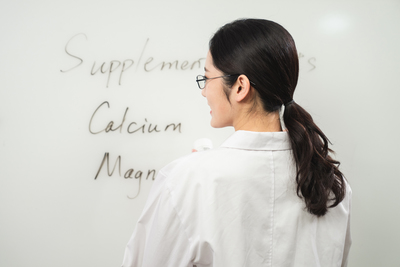 Supplemen s
Calcium
Magn